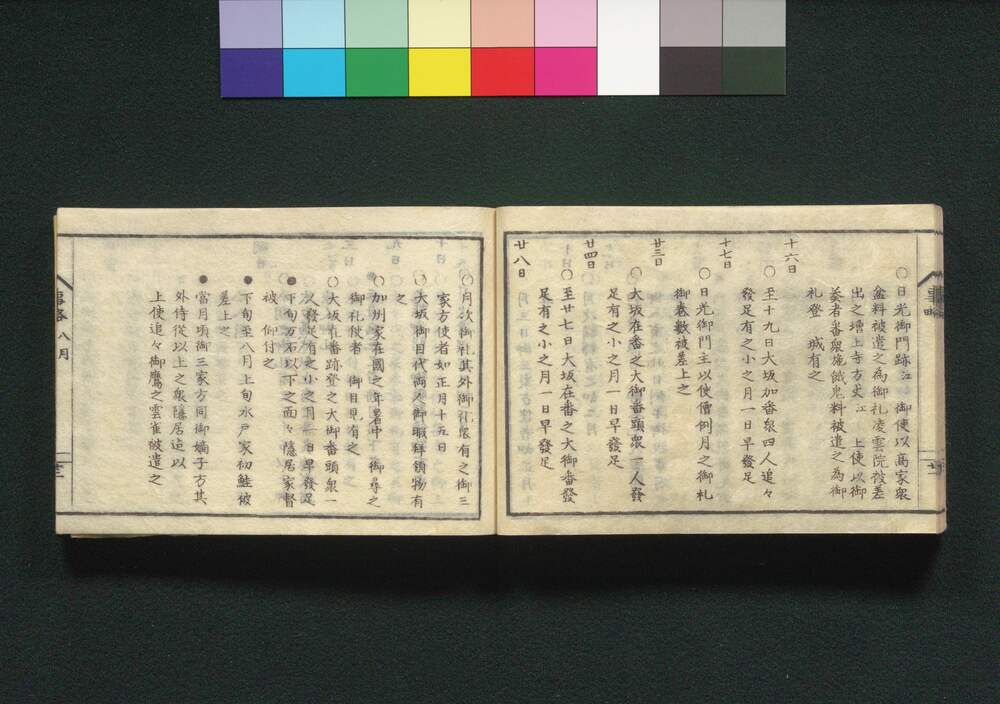 ○日光御門跡江 御使以高家衆
盆料被遣之為御礼凌雲院被差
出之増上寺方丈江 上使以御
奏者番衆施餓鬼料被遣之為御
礼登 城有之
十六日
○至十九日大坂加番衆四人追々
發足有之小之月一日早發足
十七日
○日光御門主以使僧例月之御札
御卷數被差上之
廿三日
○大坂在番之大御番頭衆一人發
足有之小之月一日早發足
廿四日
○至廿七日大坂在番之大御番發
足有之小之月一日早發足
廿八日
○月次御礼其外御礼衆有之御三
家方使者如正月十五日
○大坂御目代両人御暇拜領物有
之
○加州家在國之年暑中 御尋之
御礼使者 御目見有之
○大坂在番跡登之大御番頭衆一
人發足有之小之月一日早發足
●下旬万石以下之面々隠居家督
被 仰付之
●下旬至八月上旬水戸家初鮭被
差上之
●當月頃御三家方同御嫡子方其
外侍從以上之衆隠居迠以
上使追々御鷹之雲雀被遣之
事略 八月